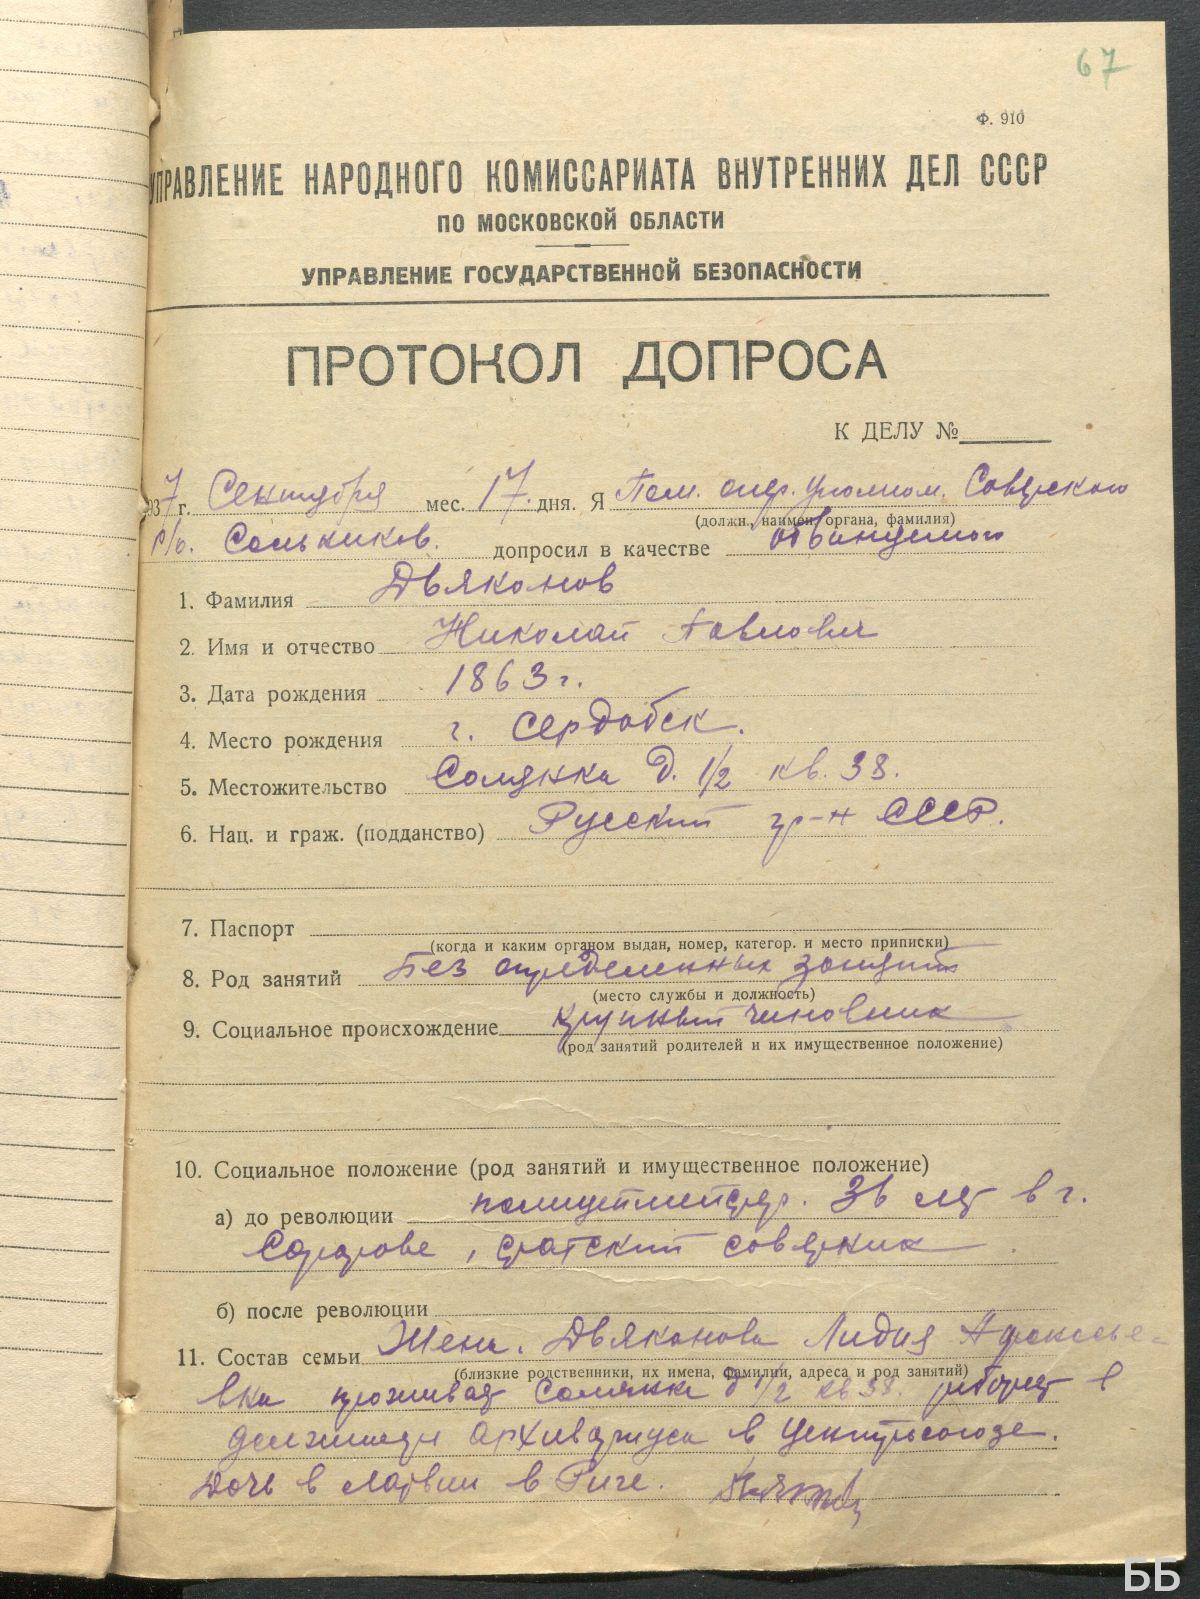 67
Ф. 910
УПРАВЛЕНИЕ НАРОДНОГО КОМИССАРИАТА ВНУТРЕННИХ ДЕЛ СССР
ПО МОСКОВСКОЙ ОБЛАСТИ
УПРАВЛЕНИЕ ГОСУДАРСТВЕННОЙ БЕЗОПАСНОСТИ
ПРОТОКОЛ ДОПРОСА
К ДЕЛУ №
937 г. Сентября мес. 17 дня. Я Пом. опер. уполном. Советского
(должн., наимен. органа, фамилия)
р/о. допросил в качестве обвиняемого
1. Фамилия Дьяконов
2. Имя и отчество Николай Павлович
3. Дата рождения 1863 г.
4. Место рождения г. Сердобск.
5. Местожительство Солянка д. 1/2 кв. 38.
6. Нац. и граж. (подданство) Русский гр-н СССР.
7. Паспорт
(когда и каким органом выдан, номер, категор. и место приписки)
8. Род занятий Без определенных занятий
(место службы и должность)
9. Социальное происхождение крупный чиновник
(род занятий родителей и их имущественное положение)
10. Социальное положение (род занятий и имущественное положение)
а) до революции полицмейстер. лет в г.
Саратове, статский советник
б) после революции
11. Состав семьи Жена. Дьяконова Лидия
(близкие родственники, их имена, фамилии, адреса и род занятий)
вна проживает Солянка д 1/2 кв 38. работает в
должности архивариуса в Центросоюзе.
Дочь в Латвии в Риге.
ББ